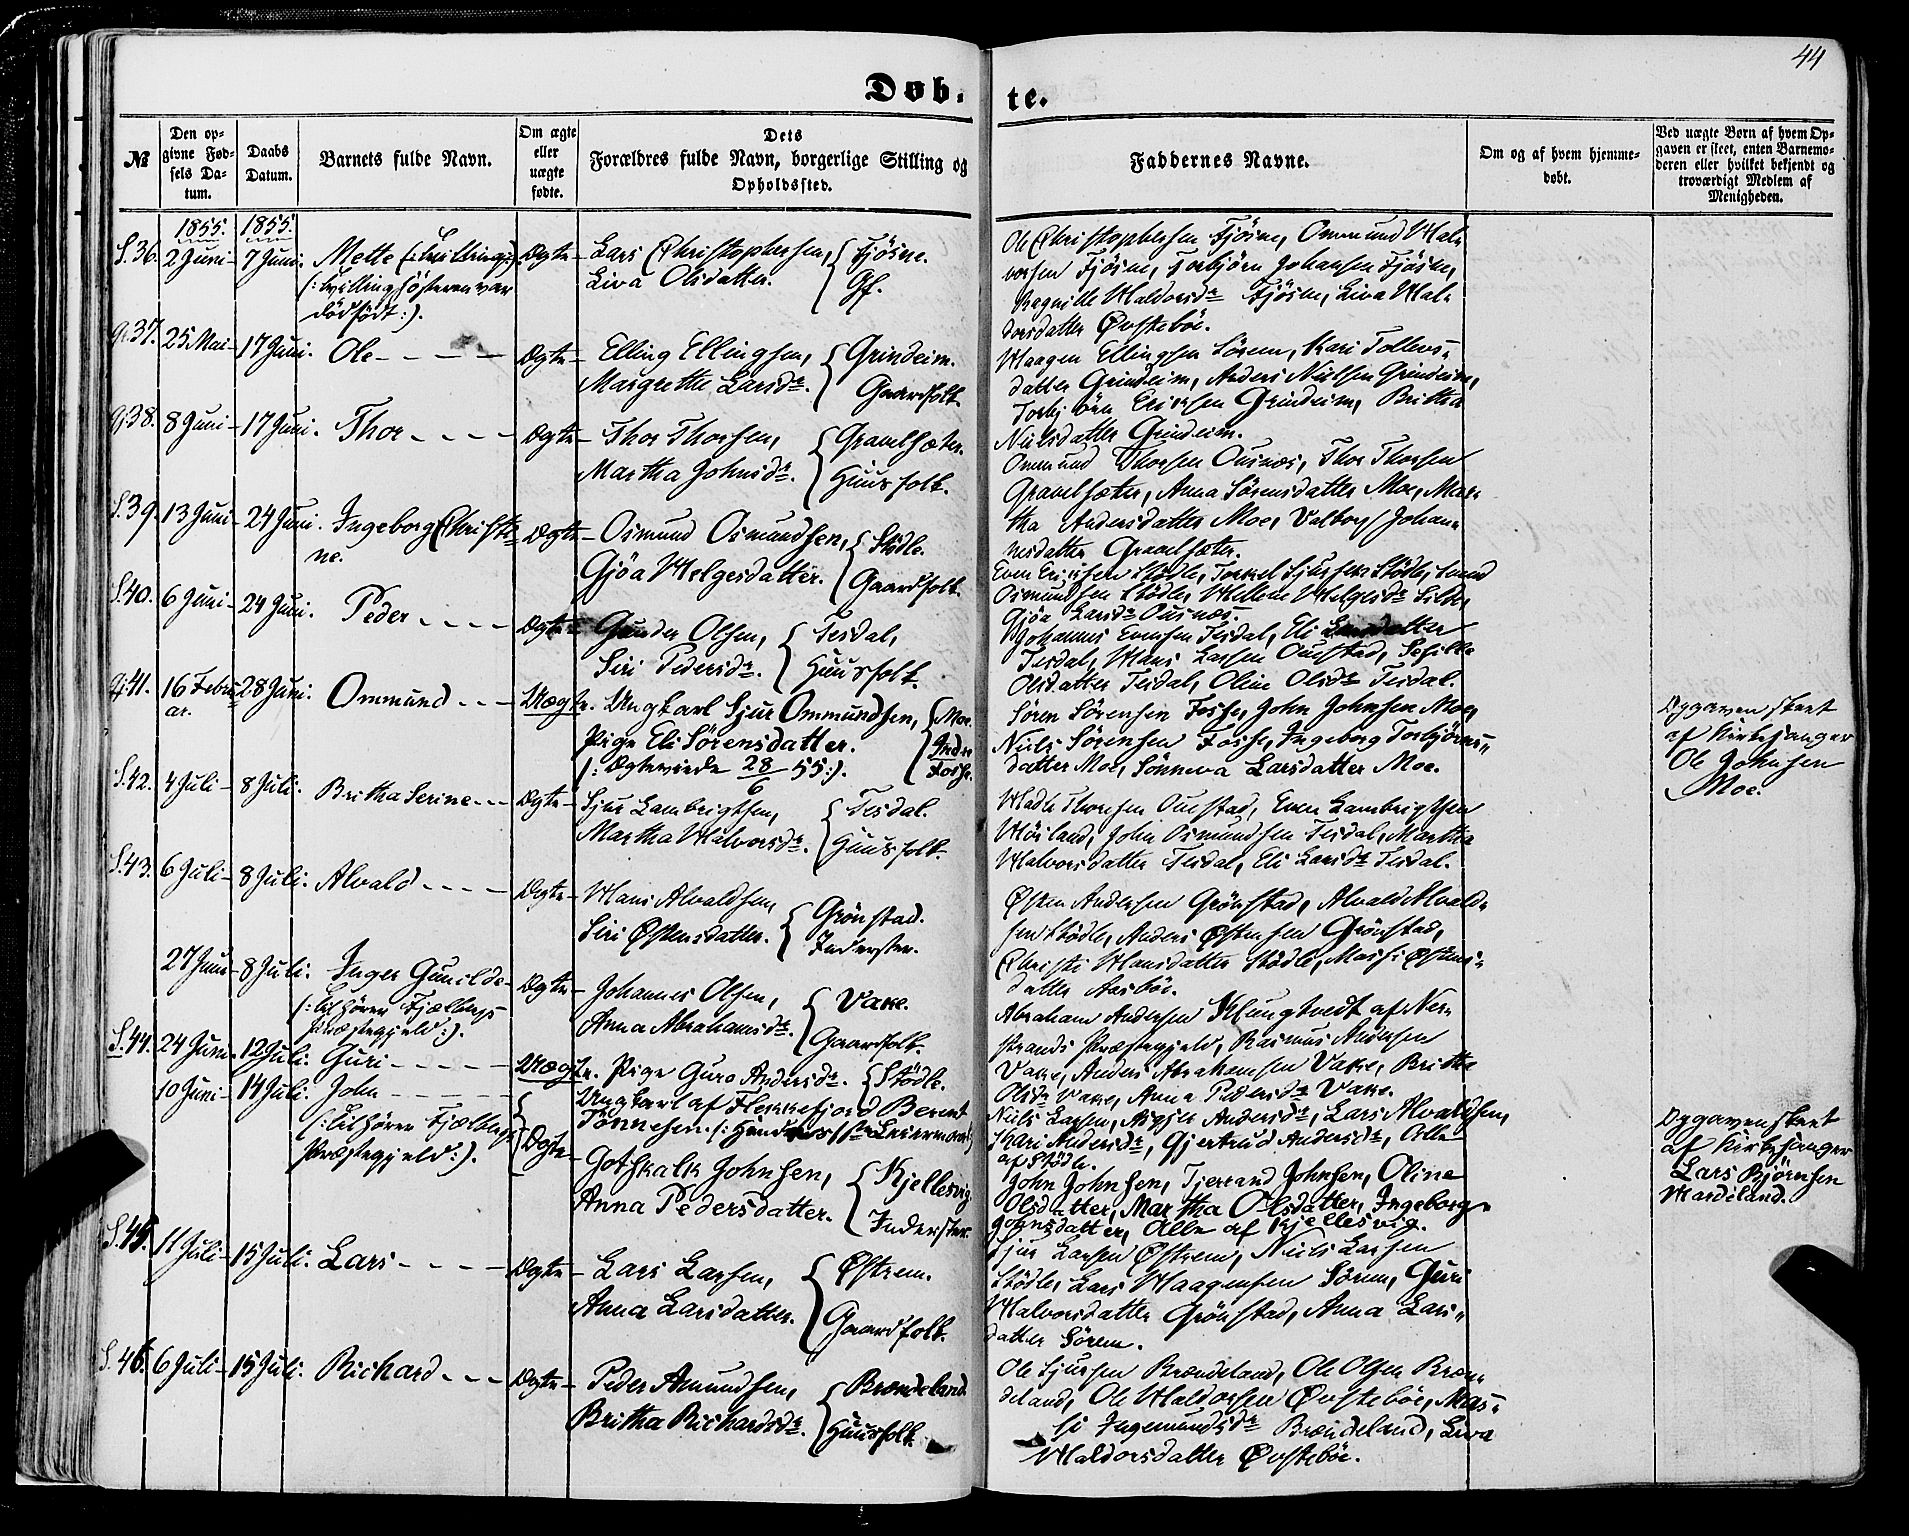 44
Døb-
te.
№
Den op-
givne Fød-
sels Da-
tum.
Daabs
Datum.
Barnets fulde Navn.
Om ægte
eller
uægte
fødte.
Dets
Forældres fulde Navn, borgerlige Stilling og
Opholdssted.
Faddernes Navne.
Om og af hvem hjemme-
døbt.
Ved uægte Børn af hvem Op-
gaven er skeet, enten Barnemo-
deren eller hvilket bekjendt og
troværdigt Medlem af
Menigheden.
1855. 1855.
S. 36. 2 Juni 7 Juni. Mette (: Tvilling :). Ægte Lars Christophersen, Fjösne.
(: Tvillingsösteren var Liva Olsdatter. Gf.
dödfödt :).
Ole Christophersen Fjösne, Ommund Hal-
vorsen Fjösne, Torbjörn Johansen Fjösne,
Ragnille Haldorsdr Fjösne, Liva Hal-
dorsdatter Øvsteböe.
37. 25 Mai 17 Juni. Ole Ægte Elling Ellingsen, Grindeim.
Margrethe Larsdr. Gaardfolk
Haagen Ellingsen Sörem, Kari Tollevs-
datter Grindeim, Anders Nielsen Grindeim,
Torbjörn Eriksen Grindeim, Britha
Nielsdatter Grindeim.
38. 8 Juni 17 Juni. Thor Ægte Thor Thorsen, Gravelsæter.
Martha Johnsdr. Huusfolk.
Ommund Thorsen Ousnæs, Thor Thorsen
Gravelsæter, Anna Sörensdatter Moe, Mar-
tha Andersdatter Moe, Valborg Johan-
nesdatter Gravelsæter.
S. 39. 13 Juni 24 Juni. Ingeborg Christi- Ægte Osmund Osmundsen, Stödle.
ne. Gjöa Helgesdatter. Gaardfolk.
Even Eriksen Stödle, Torkel Sjursen Stödle,
Osmundsen Stödle, Helgesdr
Gjöa Larsdr Ousnæs.
S. 40. 6 Juni 24 Juni. Peder Ægte Gunder Olsen, Tesdal,
Siri Pedersdr. Huusfolk.
Johannes Evensen Tesdal, Eli Larsdatter
Tesdal, Hans Larsen Oustad,
Olsdatter Tesdal, Oline Olsdr Tesdal.
41. 16 Febru- 28 Juni. Ommund Uægte. Ungkarl Sjur Ommundsen, Moe.
ar. Pige Eli Sörensdatter. Indre
(: Ægteviede 28/6 55 :). Fosse.
Sören Sörensen Fosse, John Johnsen Moe,
Niels Sörensen Fosse, Ingeborg Torbjörns-
datter Moe, Sönneva Larsdatter Moe.
Opgaven skeet
af Kirkesanger
Ole Johnsen
Moe.
S. 42. 4 Juli 8 Juli. Britha Serine Ægte Sjur Lambrigtsen, Tesdal.
Martha Halvorsdr. Huusfolk.
Thorsen Oustad, Even Lambrigtsen
Höiland, John Osmundsen Tesdal, Martha
Halvorsdatter Tesdal, Eli Larsdr Tesdal.
S. 43. 6 Juli 8 Juli. Alvald Ægte Hans Alvaldsen, Grönstad.
Siri Østensdatter. Inderster.
Østen Andersen Grönstad, Alvald Alvald-
sen Stödle, Anders Østensen Grönstad,
Christi Hansdatter Stödle, Massi Østens-
datter Aasböe.
27 Juni 8 Juli. Inger Gunilde Ægte Johannes Olsen, Vake.
(: tilhörer Fjælbergs Anna Abrahamsdr. Gaardfolk.
Præstegjeld :).
Abraham Andersen Klungtvedt af Ner-
strands Præstegjeld, Rasmus Andersen
Vake, Anders Abrahamsen Vake, Britha
Olsdr Vake, Anna Pedersdr Vake.
S. 44. 24 Juni 12 Juli. Guri Uægte. Pige Guro Andersdr. Stödle.
Ungkarl af Flekkefjord Berent
Tönnesen.
Niels Larsen, Andersdr, Lars Alvaldsen,
Kari Andersdr, Gjertrud Andersdr, Alle
af Stödle.
Opgaven skeet
af Kirkesanger
Lars Björnsen
Mardeland.
10 Juni 14 Juli. John Ægte Gotskalk Johnsen, Kjellesvig
(: tilhörer Fjælbergs Anna Pedersdatter. Inderster.
Præstegjeld :).
John Johnsen, Tjerrand Johnsen, Oline
Olsdatter, Martha Olsdatter, Ingeborg
Johnsdatter, Alle af Kjellesvig.
S. 45. 11 Juli 15 Juli. Lars Ægte Lars Larsen, Østrem.
Anna Larsdatter. Gaardfolk.
Sjur Larsen Østrem, Niels Larsen
Stödle, Lars Haagensen Sörem, Guri
Halvorsdatter Grönstad, Anna Lars-
datter Sörem.
S. 46. 6 Juli 15 Juli. Richard Ægte Peder Amundsen, Brændeland
Britha Richardsdr. Huusfolk
Ole Sjursen Brændeland, Ole Olsen Bræn-
deland, Ole Haldorsen Øvsteböe, Mas-
si Ingemundsdr Brændeland, Liva
Haldorsdatter Øvsteböe.